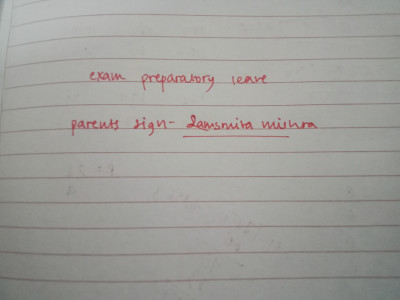 exam preparatory leave
parents sign- Samsmita mishra